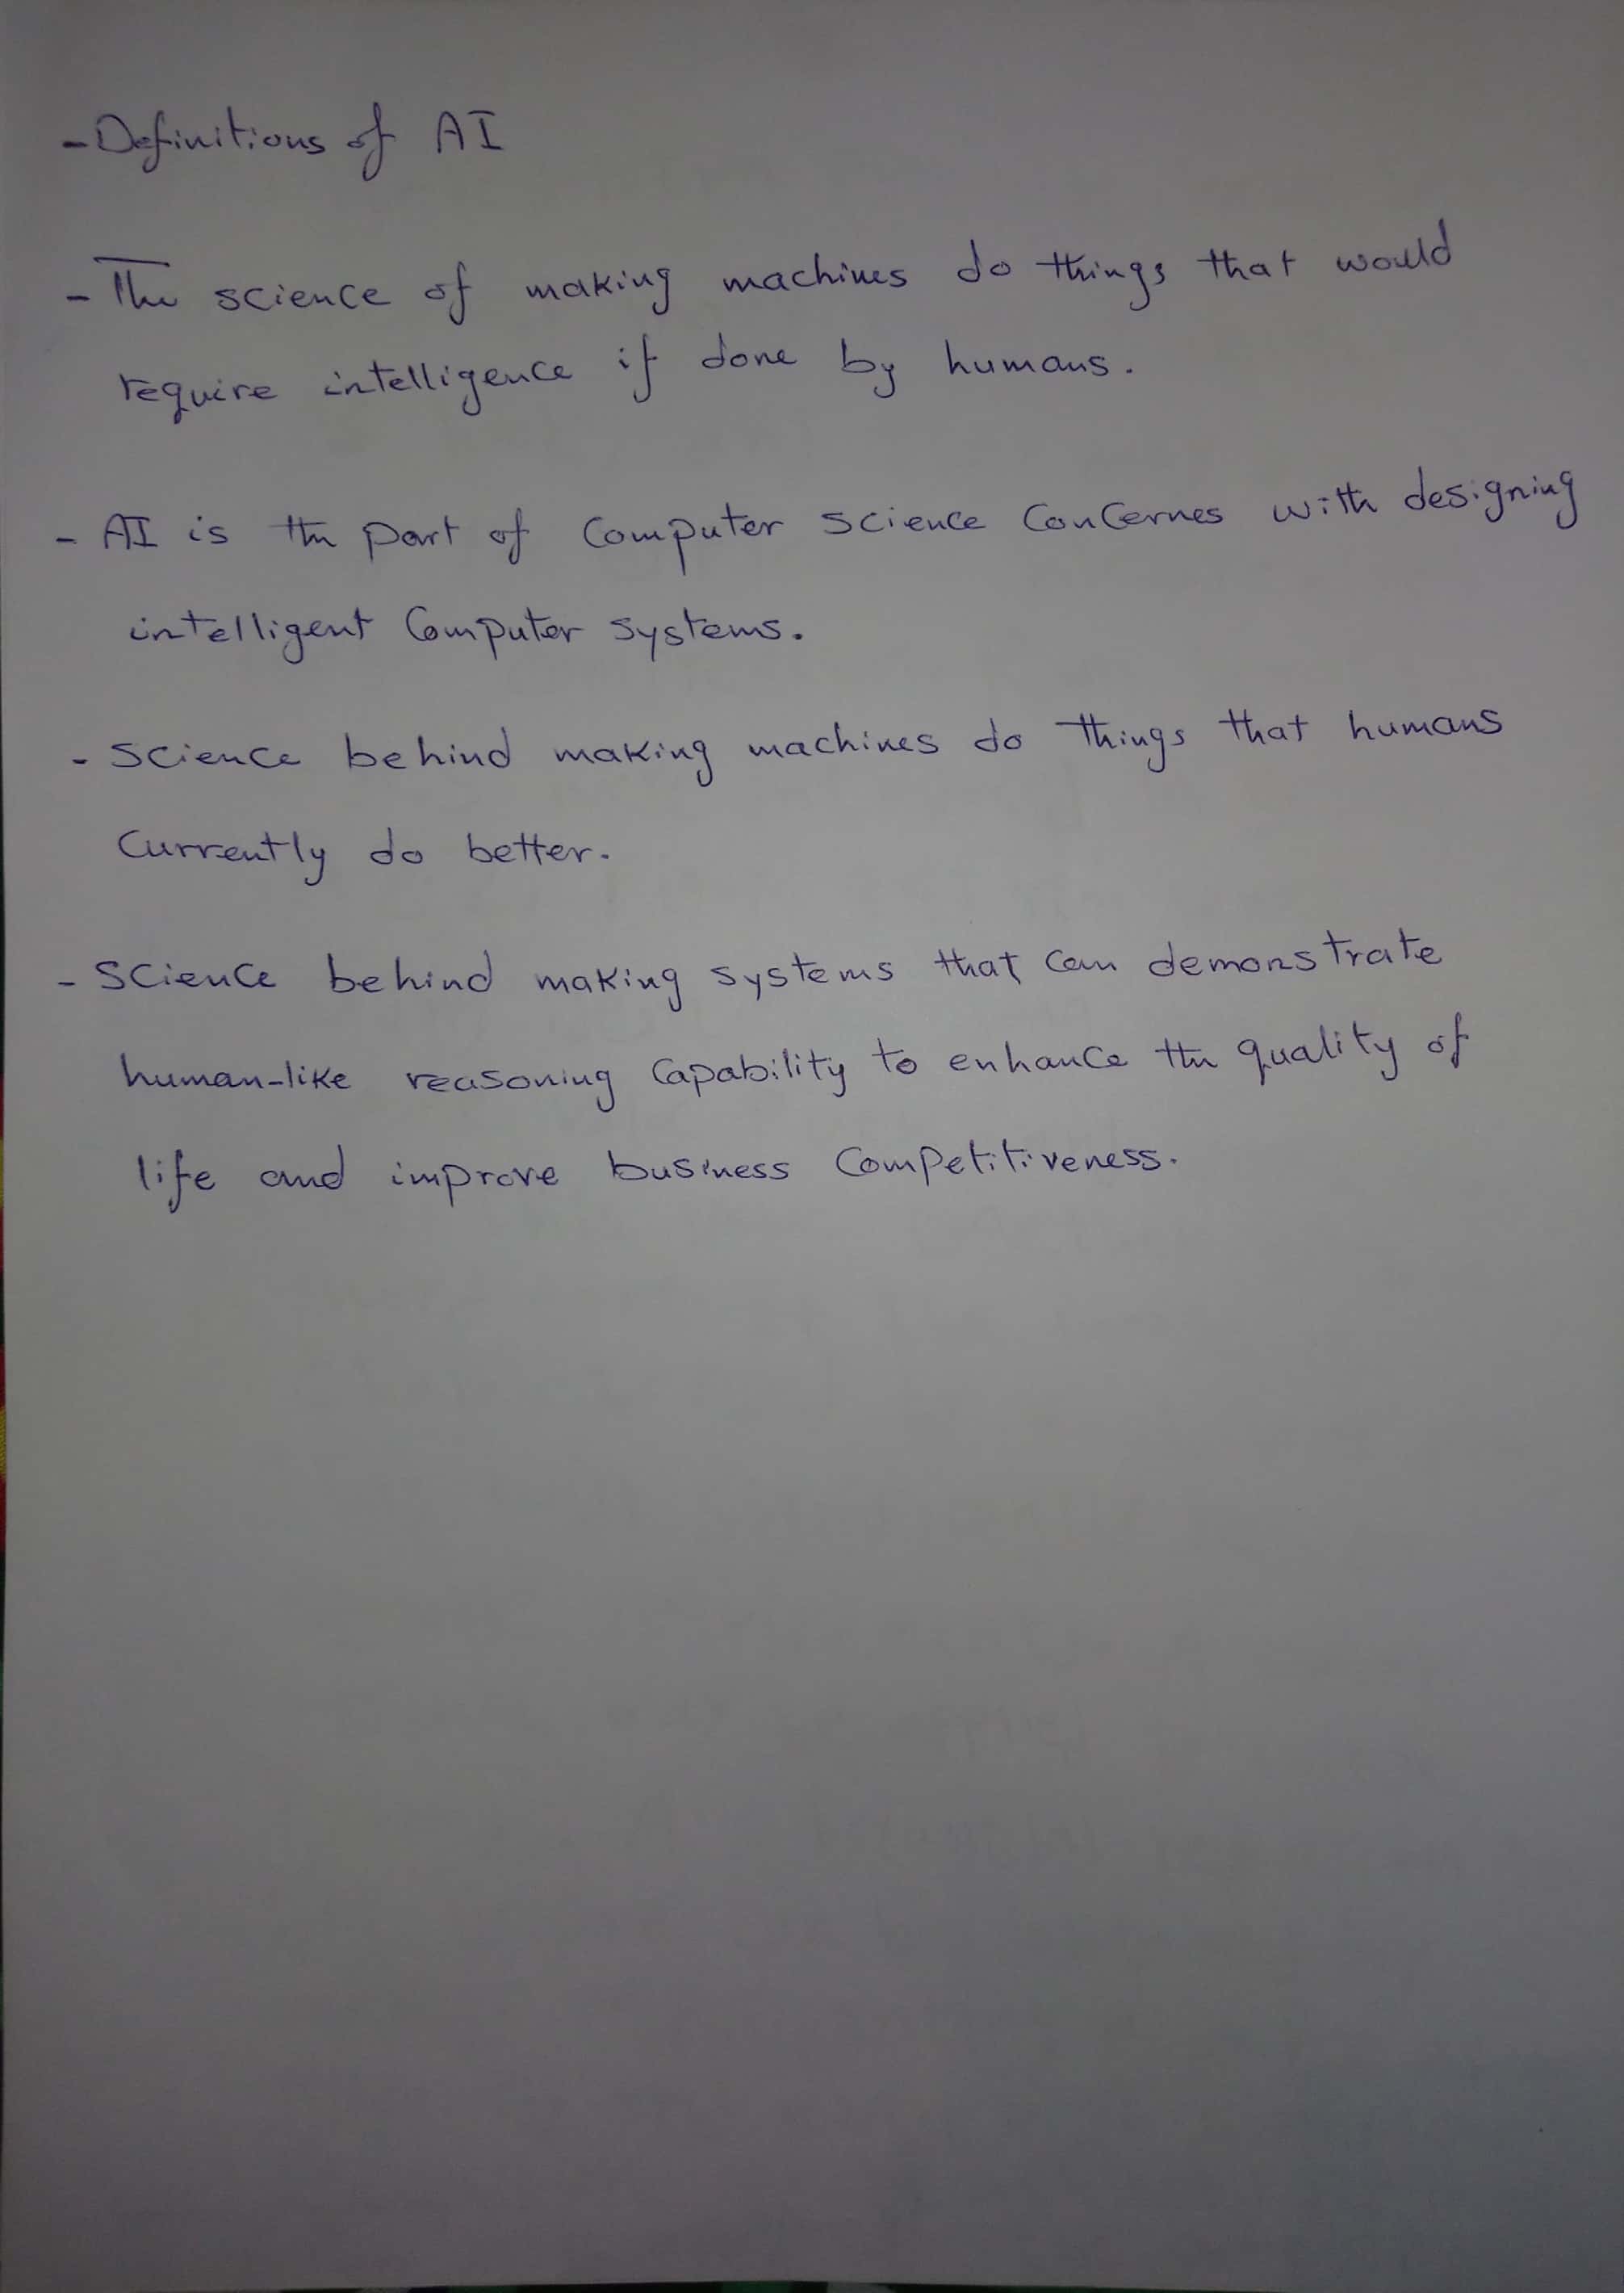 - Definitions of AI
- The science of making machines do things that would
require intelligence if done by humans.
- AI is the part of Computer Science Concernes with designing
intelligent Computer systems.
- Science behind making machines do things that humans
Currently do better.
- Science behind making systems that can demonstrate
human-like reasoning Capability to enhance the quality of
life and improve business Competitiveness.